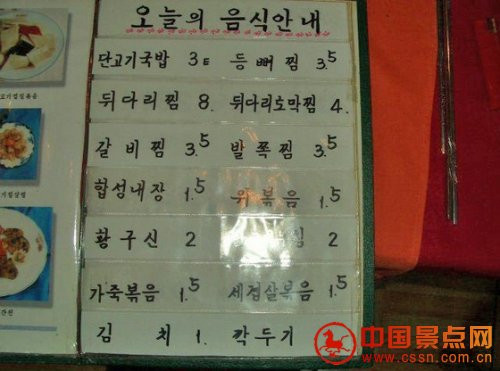 오늘의 음식안내
단고기국밥 3E 등뼈찜 3.5
뒤다리찜 8. 뒤다리토막찜 4.
갈비찜 3.5 발쪽찜 3.5
합성내장 1.5 위볶음 1.5
황구신 2 2
가죽볶음 1.5 세겹살볶음 1.5
김치 1. 깍두기
中国景点网
www.cssn.com.cn